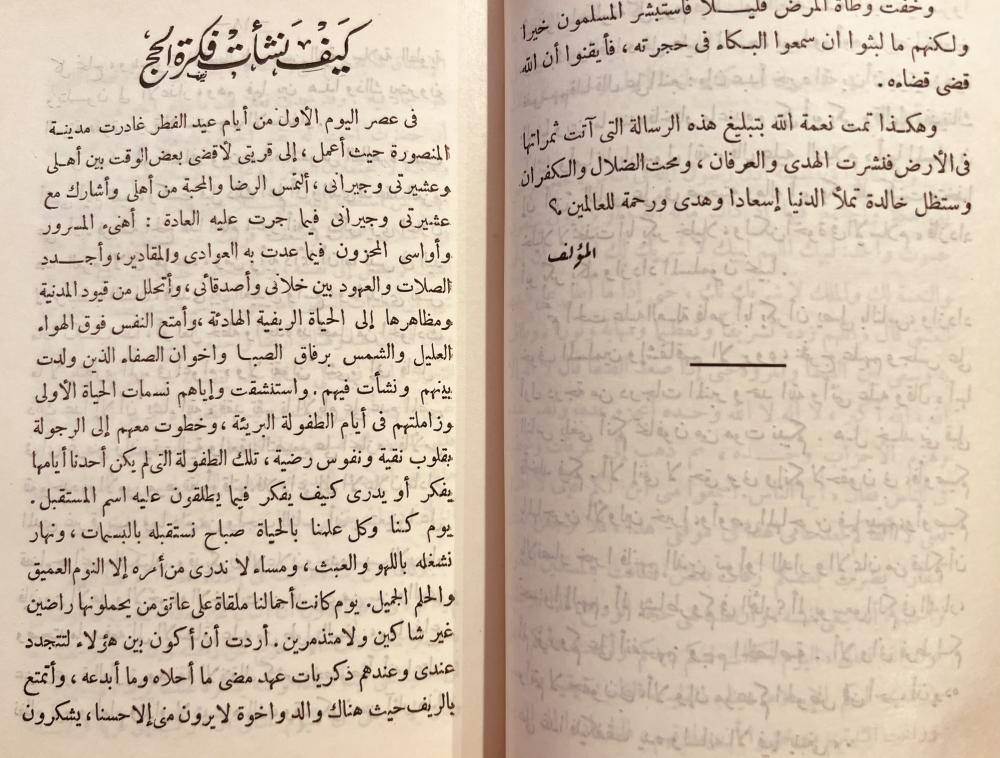 وخفت وطأة المرض قليـــلا فاستبشر المسلمون خيرا
ولكنهم ما لبثوا ان سمعوا البـكاء فى حجرته ، فأيقنوا أن الله
قضى قضاءه .
وهكـذا تمت نعمة الله بتبليغ هذه الرسالة التى آتت ثمراتها
فى الأرض فنشرت الهدى والعرفان ، ومحت الضلال والـكفران
وستظل خالدة تملأ الدنيا إسعادا وهدى ورحمة للعالمين ؟
المؤلف
كيف نشأت فكرة الحج
فى عصر اليوم الأول من أيام عيد الفطر غادرت مدينـة
المنصورة حيث أعمل ، إلى قريتى لأقضى بعض الوقت بين أهـلى
وعشيرتى وجيرانى ، ألتمس الرضا والمحبة من أهلى وأشارك مع
عشيرتى وجيرانى فيما جرت عليه العادة : أهنىء المسرور
وأواسى المحزون فيما عدت به العوادى والمقادير ، وأجـــدد
الصلات والعهود بين خلانى وأصدقائى ، وأتحلل من قيود المدنية
ومظاهرها إلى الحياة الريفية الهادئة ، وأمتع النفس فوق الهواء
العليل والشمس برفاق الصبـا واخوان الصفاء الذين ولدت
بينهم ونشأت فيهم . واستنشقت وإياهم نسمات الحياة الأولى
وزاملتهم فى أيام الطفولة البريئة ، وخطوت معهم إلى الرجولة
بقلوب نقية ونفوس رضية ، تلك الطفولة التى لم يكن أحدنا أيامها
يفكر أو يدرى كيف يفكر فيما يطلقون عليه اسم المستقبل .
يوم كـنا وكل علمنا بالحياة صباح نستقبله بالبسمات ، ونهار
نشغله باللهو والعبث ، ومساء لا ندرى من أمره إلا النوم العميق
والحلم الجميل . يوم كانت أحمالنا ملقاة على عاتق من يحملونها راضين
غير شاكين ولا متذمرين . أردت أن أكون بين هؤلاء لتتجدد
عندى وعندهم ذكريات عهد مضى ما أحلاه وما أبدعه ، وأتمتع
بالريف حيث هناك والد واخوة لا يرون منى إلا حسنا ، يشكرون